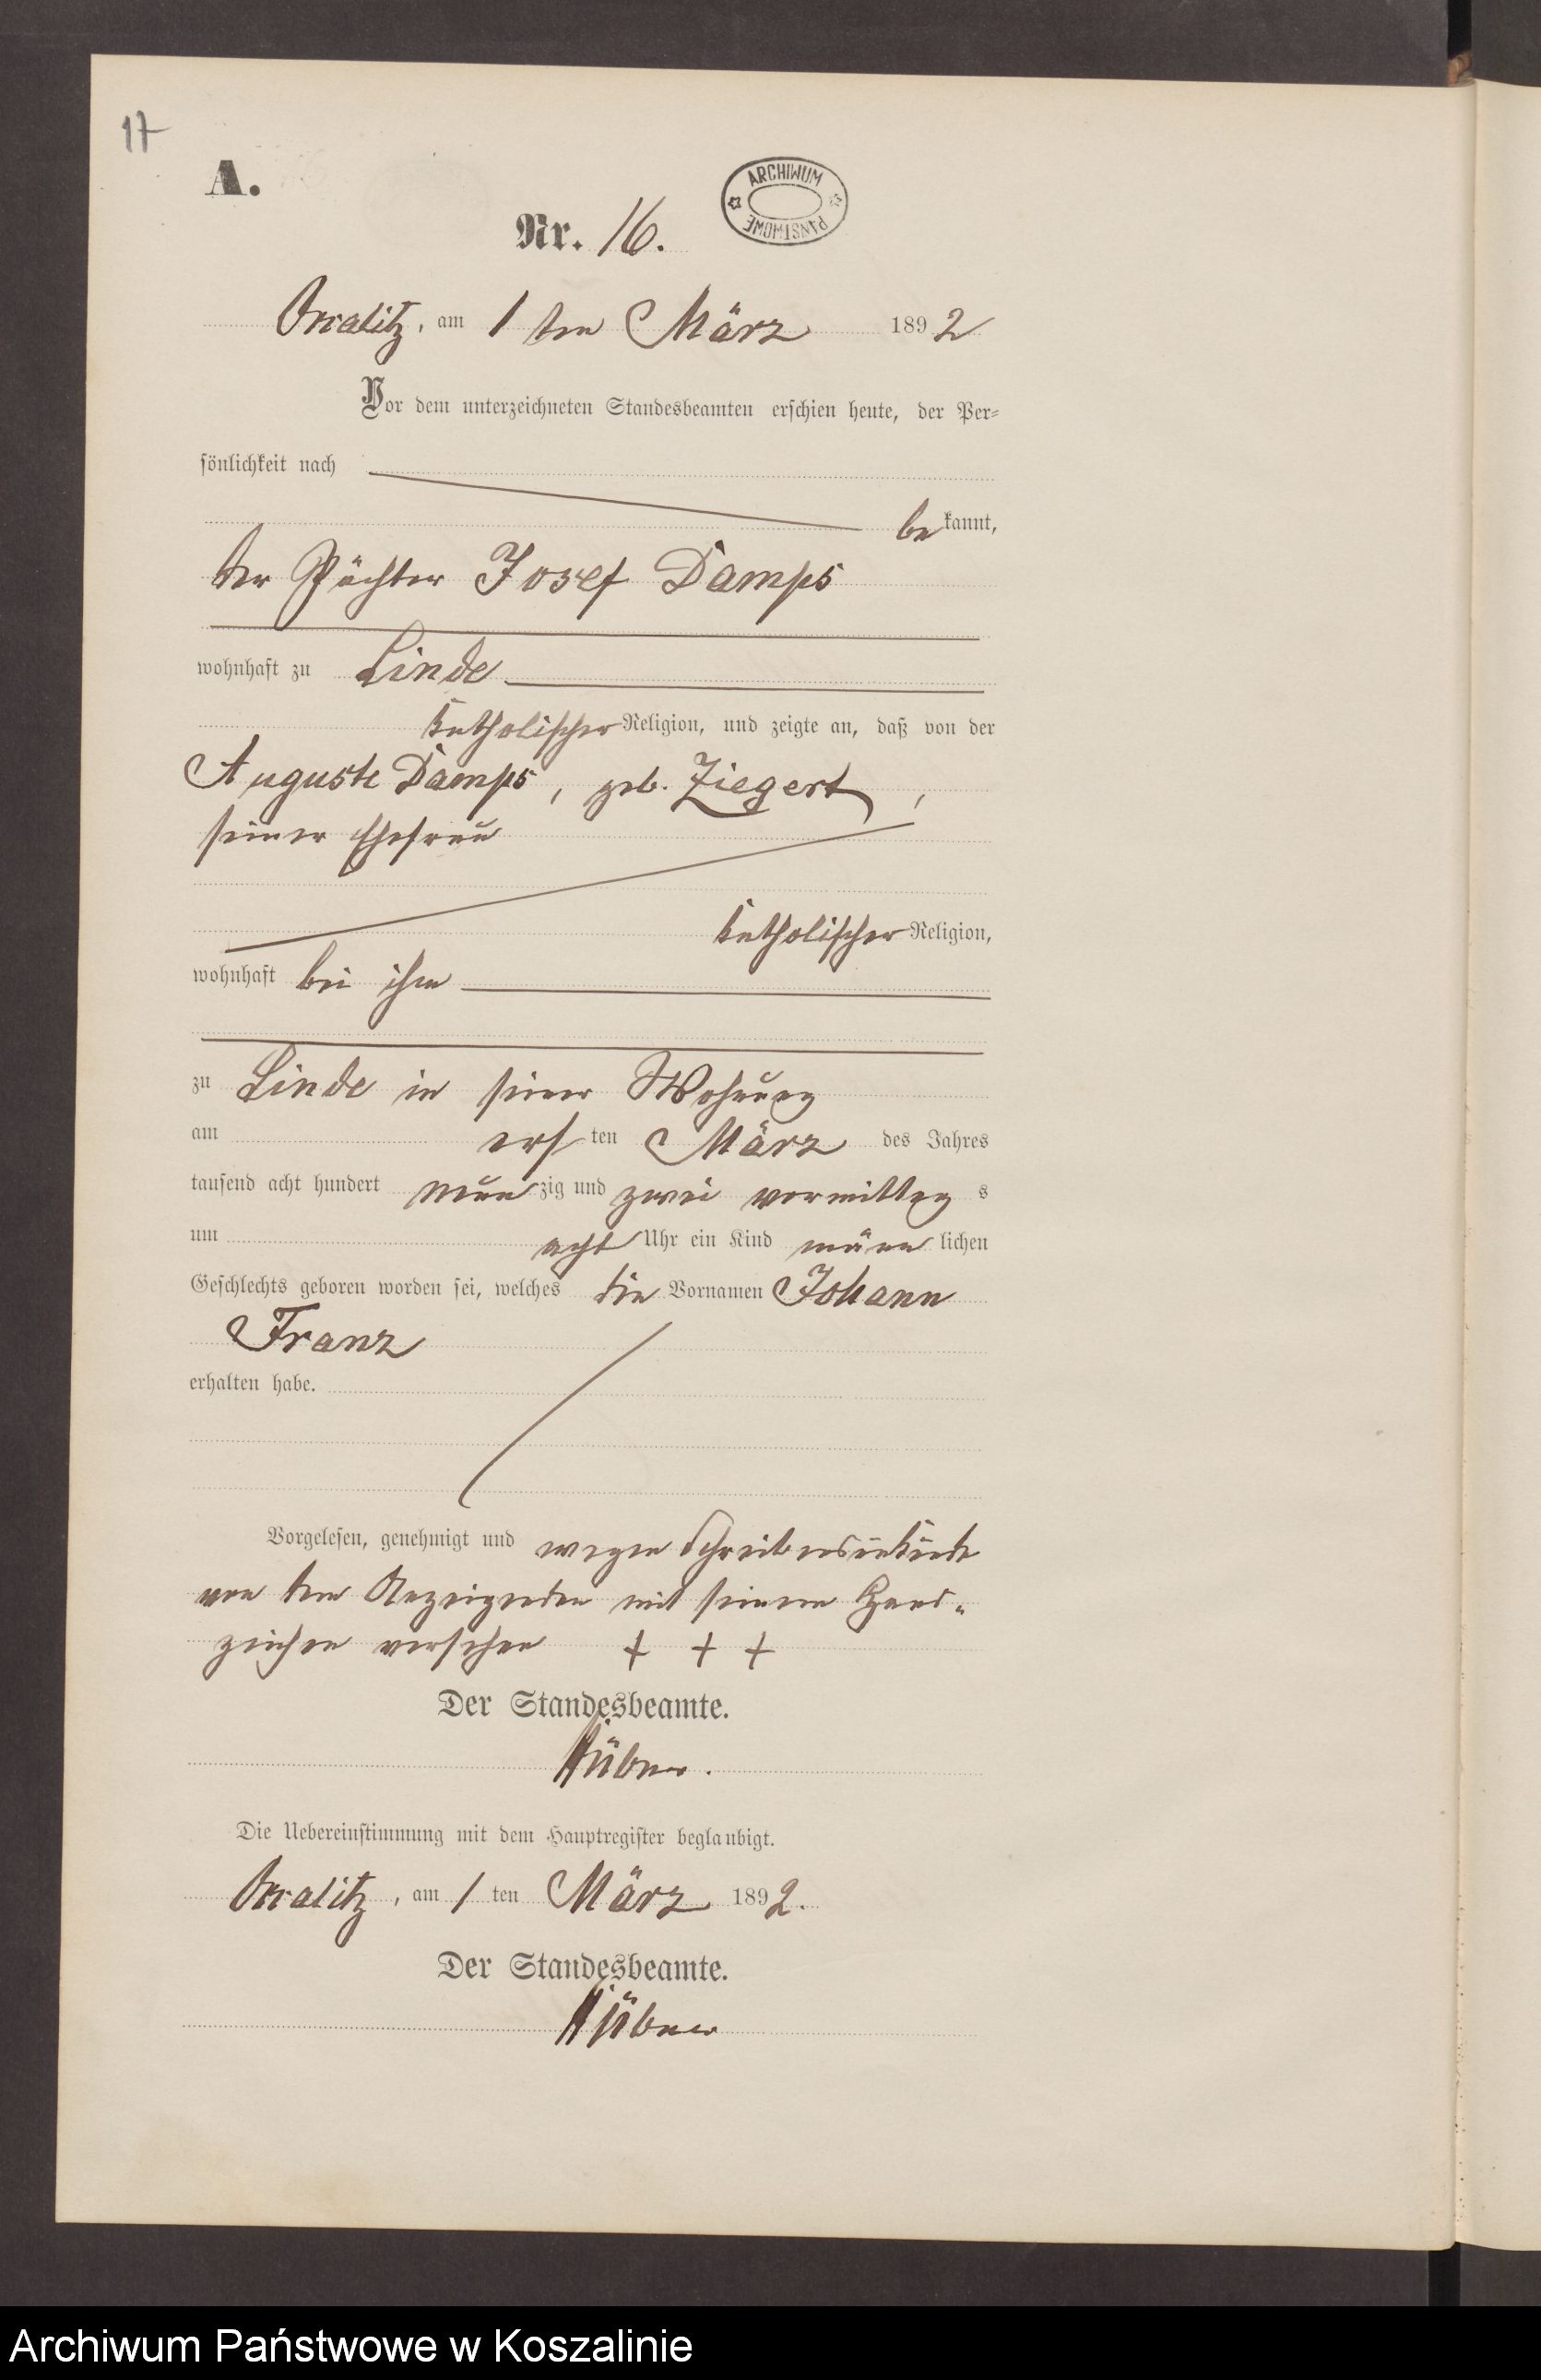 17
A.
ARCHIWUM PAŃSTWOWE
Nr. 16.
am 1 ten März 1892
Vor dem unterzeichneten Standesbeamten erschien heute, der Per-
sönlichkeit nach
bekannt,
der Pächter Josef Damps
wohnhaft zu Linde
katholischer Religion, und zeigte an, daß von der
Auguste Damps, geb. Ziegert,
seiner Ehefrau
katholischer Religion,
wohnhaft bei ihm
zu Linde in seiner Wohnung
am ersten März des Jahres
tausend acht hundert neunzig und zwei vormittags
um acht Uhr ein Kind männlichen
Geschlechts geboren worden sei, welches die Vornamen Johann
Franz
erhalten habe.
Vorgelesen, genehmigt und wegen Schreibensunkunde
von dem Anzeigenden mit seinem Hand-
zeichen versehen + + +
Der Standesbeamte.
Hübner.
Die Uebereinstimmung mit dem Hauptregister beglaubigt.
am 1 ten März 1892.
Der Standesbeamte.
Hübner
Archiwum Państwowe w Koszalinie